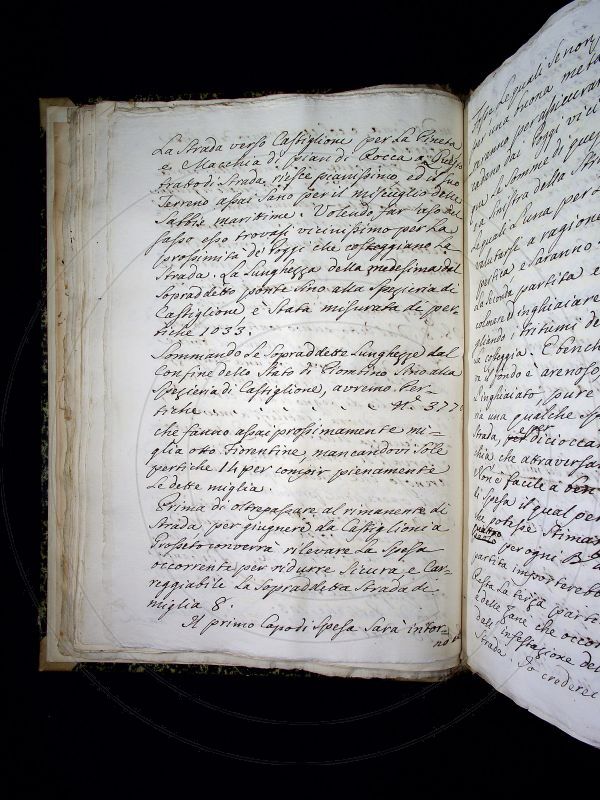 La Strada verso Castiglione per La Pineta
e Macchia di pian di Rocca à Questo
tratto di Strada riesce pianissimo, ed il suo
Terreno assai Sano per il miscuglio delle
Sabbie maritime. Volendo far uso del
sasso esso trovasi vicinissimo per La
prossimità de' Poggi che costeggiano La
Strada. La Lunghezza della medesima dal
Sopraddetto ponte sino alla Spezieria di
Castiglione è Stata misurata di per-
tiche 1033.
Sommando Le Sopraddette Lunghezze dal
Confine dello Stato di Piombino Sino alla
Spezieria di Castiglione, avremo Per-
tiche N.º 377
che fanno assai prossimamente mi-
glia otto Fiorentine, mancandovi Sole
pertiche 14 per compir pienamente
Le dette miglia.
Prima di oltrepassare al rimanente di
Strada per giugnere da Castiglioni a
Grosseto converrà rilevare La Spesa
occorrente per ridurre Sicura, e Car-
reggiabile La Sopraddetta Strada di
miglia 8.
Il primo Capo di Spesa Sarà intor-
no
Le quali Se non
per una buona meta
saranno per assicurar
vadano dai Poggi vici
Le Somme di ques
Sinistra della Str
Le quali L'una per L
valutarsi a ragione
pertica e Saranno
La Seconda partita e
colmare e inghiaiare
gliando i tritumi de
costeggia. E bench
il fondo è arenoso
L'inghiaiato, pure
una qualche Sp
Strada, e per dicioccar
chia che attraversa
Non è facile a ben
di Spesa il qual per
potesse Stimar
quattro
per ogni
partita importereb
Resta La terza parti
e delle Zane che occor
dall' infestazione del
Strada. Io crederei